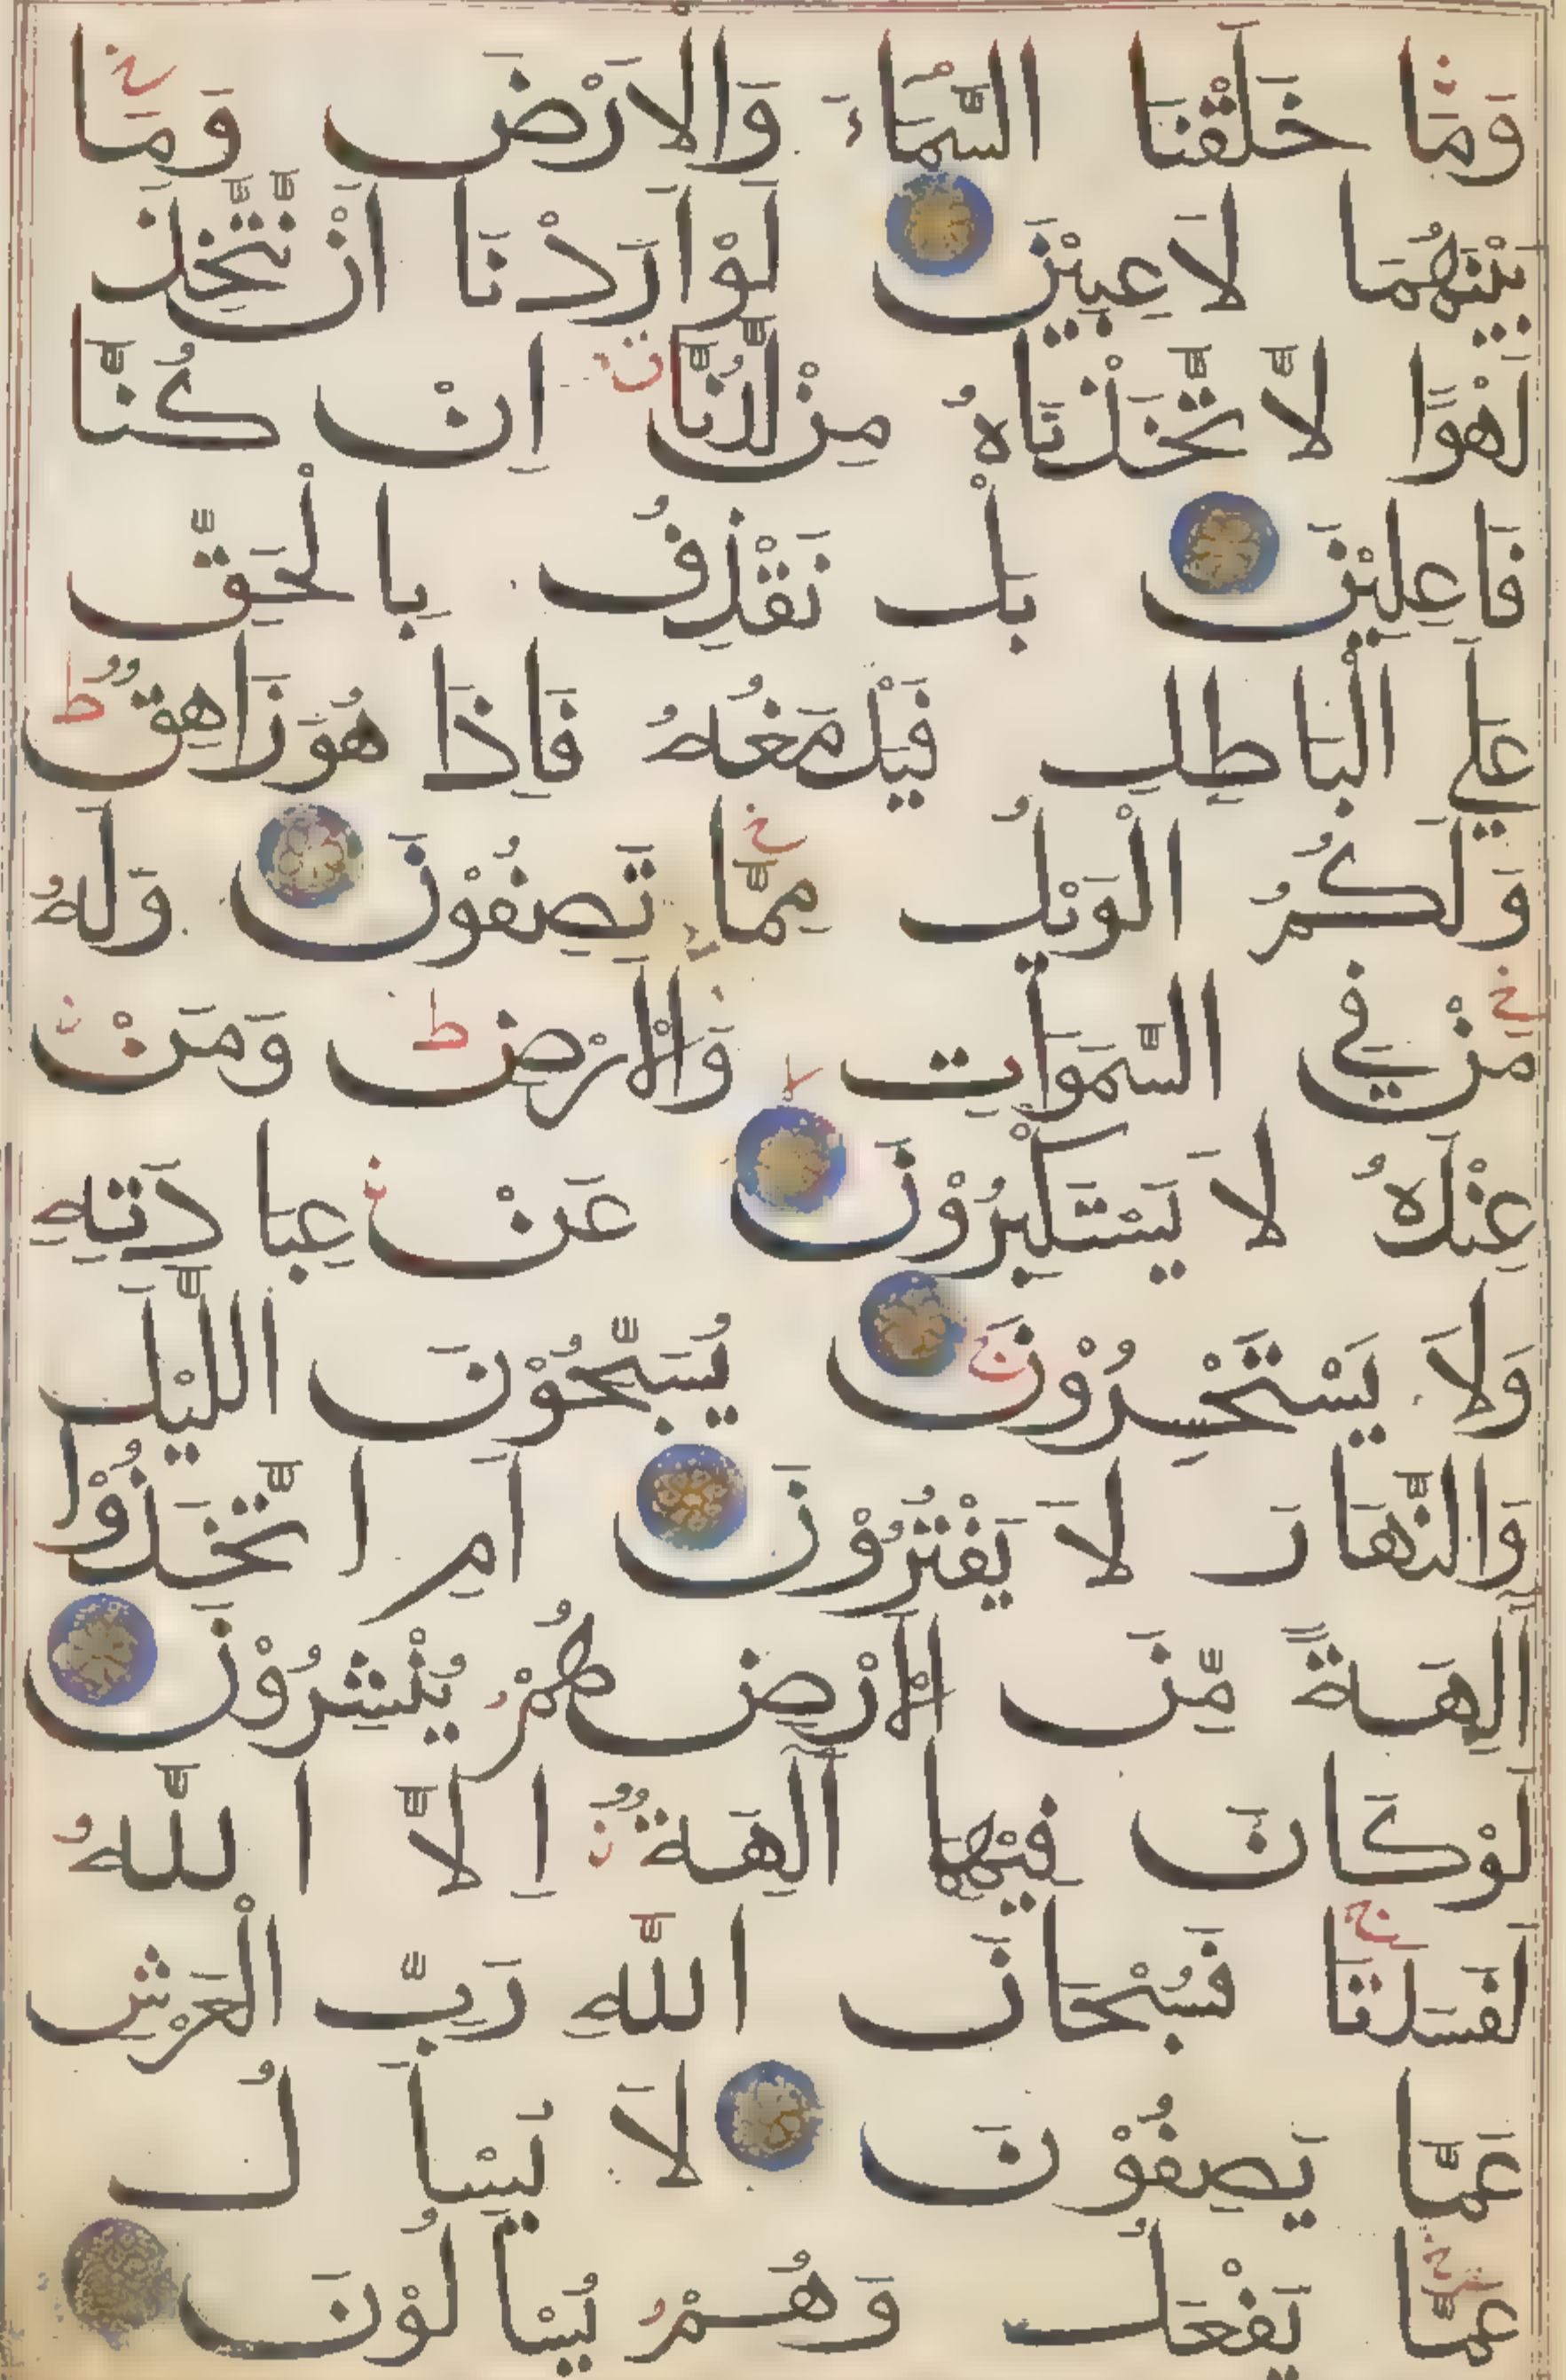 وَمَا خَلَقْنَا السَّمَاءَ وَالاَرْضَ وَمَا
بَيْنَهُمَا لاَ عِبِيْنَ لَوْ اَرَدْنَا اَنْ نَّتَّخِذَ
لَهْوًا لاَّ تَّخَذْنَاهُ مِنْ لَّدُنَّا اِنْ كُنَّا
فَاعِلِيْنَ بَلْ نَقْذِفُ بِالْحَقِّ
عَلَي الْبَاطِلِ فَيَدْمَغُهُ فَاِذَا هُوَ زَاهِقٌ
وَلَكُمُ الْوَيْلُ مِمَّا تَصِفُوْنَ وَلَهُ
مَنْ فِي السَّمَوَاتِ وَالْاَرْضِ وَمَنْ
عِنْدَهُ لاَ يَسْتَكْبِرُوْنَ عَنْ عِبَادَتِهِ
وَلاَ يَسْتَحْسِرُوْنَ يُسَبِّحُوْنَ اللَّيْلَ
وَالنَّهَارَ لاَ يَفْتُرُوْنَ اَمِ اتَّخَذُوْا
آلِهَةً مِّنَ الْاَرْضِ هُمْ يُنْشِرُوْنَ
لَوْكَانَ فِيْهِمَا آلِهَةٌ اِلاَّ اللَّهُ
لَفَسَدَتَا فَسُبْحَانَ اللَّهِ رَبِّ الْعَرْشِ
عَمَّا يَصِفُوْنَ لاَ يُسْاَلُ
عَمَّا يَفْعَلُ وَهُمْ يُسْاَلُوْنَ